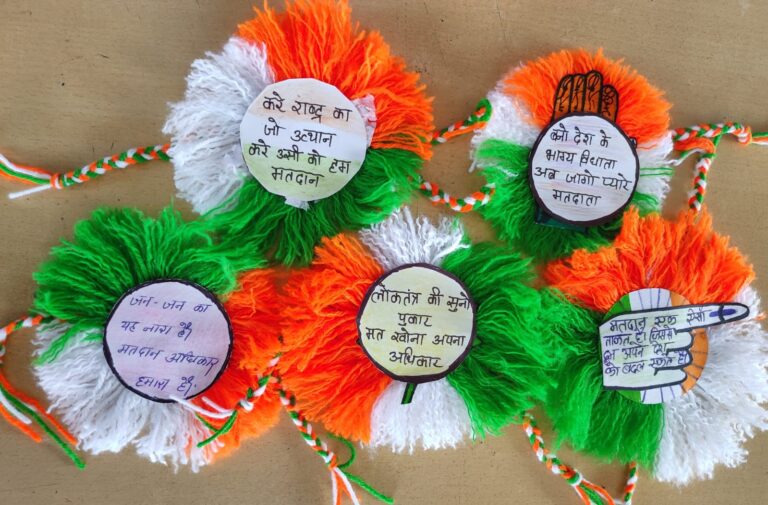 करे राष्ट्र का
जो उत्थान
करे उसी को हम
मतदान
बनो देश के
भाग्य विधाता
अब जागो प्यारे
मतदाता
जन-जन का
यह नारा है।
मतदान अधिकार
हमारा है।
लोकतंत्र की सुनो
पुकार
मत खोना अपना
अधिकार
मतदान एक ऐसी
ताकत है। जिससे
हम अपने देश
को बदल सकते है